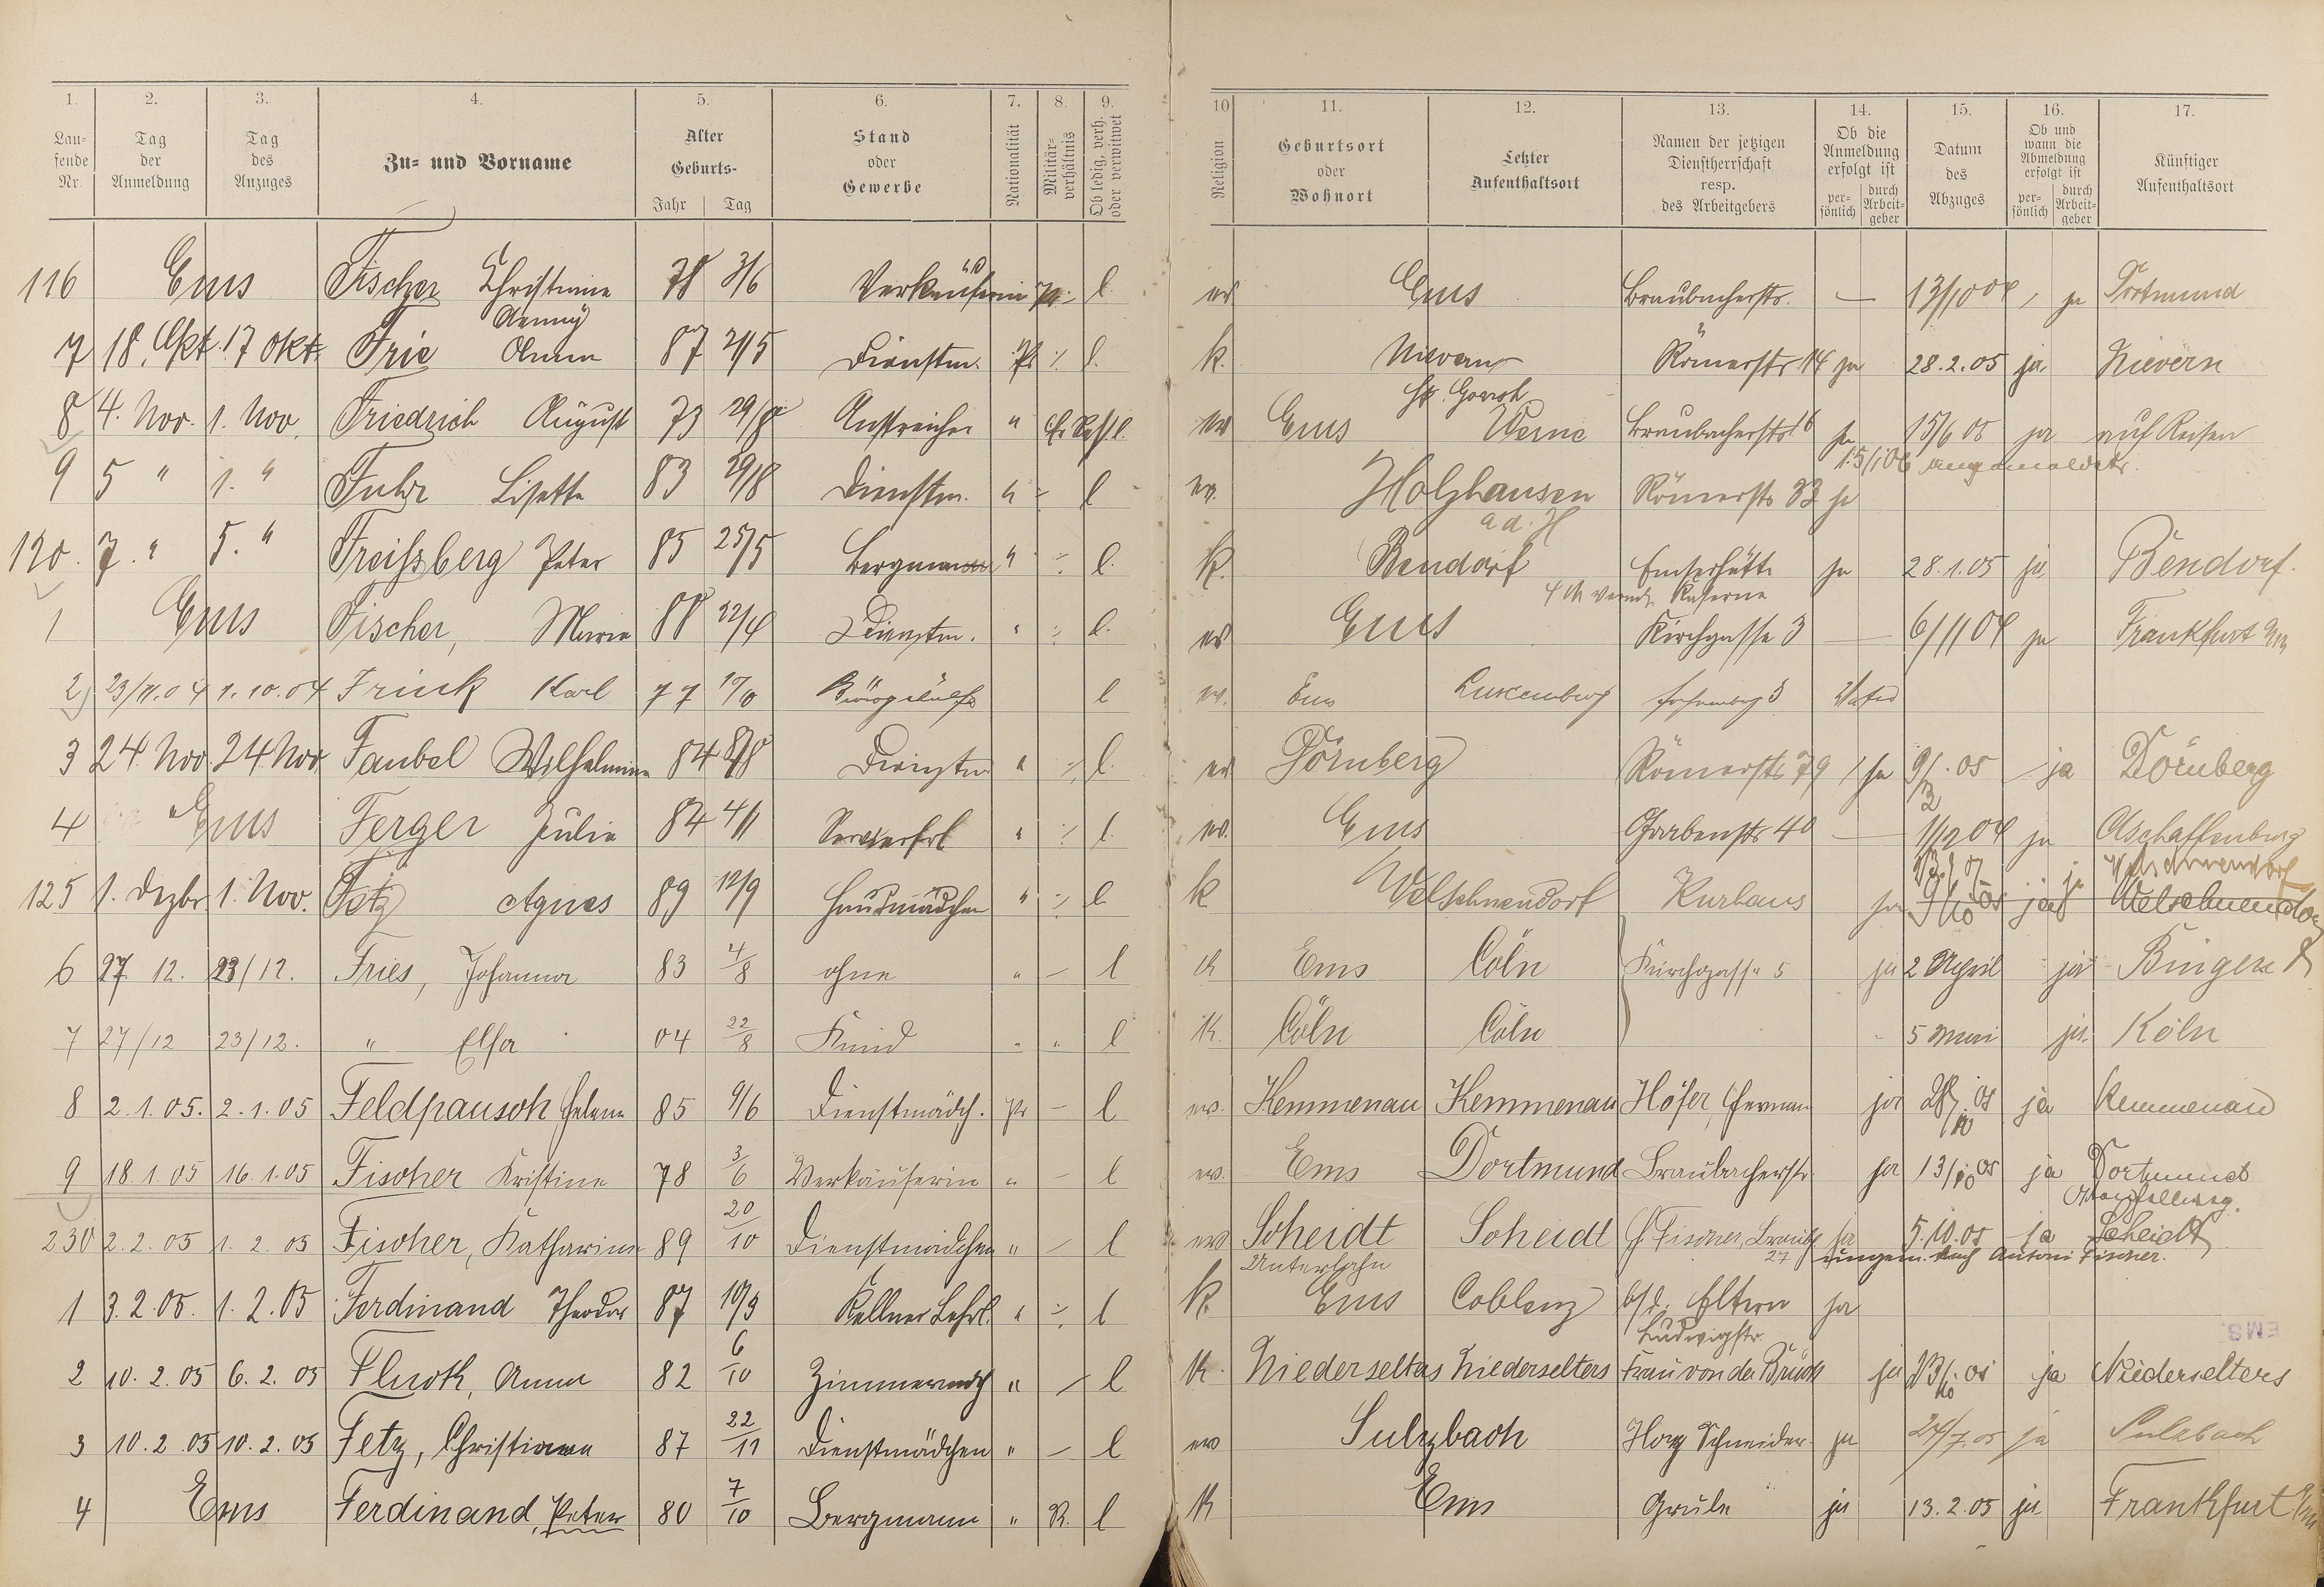 1. 2. 3. 4. 5. 6. 7. 8. 9. 10 11. 12. 13. 14. 15. 16. 17.
Lau-
fende
Nr.
Tag
der
Anmeldung
Tag
des
Anzuges
Zu- und Vorname
Alter
Geburts-
Jahr Tag
Stand
oder
Gewerbe
Nationalität
Militär-
verhältnis
Ob ledig, verh.
oder verwitwet
Religion
Geburtsort
oder
Wohnort
Letzter
Aufenthaltsort
Namen der jetzigen
Dienstherrschaft
resp.
des Arbeitgebers
Ob die
Anmeldung
erfolgt ist
per-
sönlich
durch
Arbeit-
geber
Datum
des
Abzuges
Ob und
wann die
Abmeldung
erfolgt ist
per-
sönlich
durch
Arbeit-
geber
Künftiger
Aufenthaltsort
116 Ems Fischer Christiane 78 3/6 Verkäuferin pr. l. ev Ems Braubacherstr. — 13/10 04 ja Dortmund
Aenny
7 18. Okt. 17 Okt. Frie Anna 87 2/5 Dienstm. Pr. l. k. Nievern Römerstr. 14 ja 28.2.05 ja Nievern
8 4. Nov. 1. Nov. Friedrich August 73 29/8 Anstreicher " l. ev Ems Werne Braubacherstr 16 ja 15/6 05 ja auf Reisen
15/1 06
9 5 " 1. " Fuhr Lisette 83 29/8 Dienstm. " l ev. Holzhausen Römerstr 33 ja
a.d. H
120. 7. " 5. " Freißberg Peter 85 25/5 Bergmann " l. k. Bendorf Emserhütte ja 28.1.05 ja Bendorf.
Kaserne
1 Ems Fischer, Marie 88 22/4 Dienstm. " l. ev Ems Kirchgasse 3 — 6/11 04 ja Frankfurt a/m
2 23/11.04 1.10.04 Frink Karl 77 l ev. Ems Luxemburg
3 24. Nov. 24 Nov Faubel Wilhelmine 84 8/8 Dienstm " l. ev Dörnberg Römerstr 79 ja 9/2.05 ja Dörnberg
4 Ems Ferger Julie 84 4/1 Servierfrl " l. ev. Ems Grabenstr 40 — 1/12 04 ja Aschaffenburg
Welschneudorf
125 1. Dezbr. 1. Nov. Fetz Agnes 89 12/9 Hausmädchen " l k Welschneudorf Kurhaus ja 9/10 05 ja Welschneudorf
6 27. 12. 23/12. Fries, Johanna 83 4/8 ohne " — l k Ems Cöln Kirchgasse 5 ja 2 April ja Bingen
7 27/12 23/12. " Elsa 04 22/8 Kind " " l k. Cöln Cöln 5 Mai ja Köln
8 2.1.05. 2.1.05 Feldpausch Helene 85 9/6 Dienstmädch. Pr — l ev. Kemmenau Kemmenau Höfer, Herman ja 28/10 05 ja Kemmenau
9 18.1.05 16.1.05 Fischer Kristine 78 3/6 Verkäuferin " — l ev. Ems Dortmund Braubacherstr ja 13/10 05 ja Dortmund
230 2.2.05 1.2.05 Fischer, Katharina 89 20/10 Dienstmädchen " — l ev Scheidt Scheidt H. Fischer, Braub. 27 ja 5.10.05 ja Scheidt
Unterlahn
Antoni Fischer.
1 3.2.05. 1.2.05 Ferdinand Theodor 87 10/3 Kellner Lehrl. " l k. Ems Coblenz b/d. Eltern ja
Ludwigstr.
EMS
2 10.2.05 6.2.05 Fluck, Anna 82 6/10 Zimmermdch " — l k. Niederselters Niederselters Frau von der Brück ja 13/10 05 ja Niederselters
3 10.2.05 10.2.05 Fetz, Christiana 87 22/11 Dienstmädchen " — l ev Sulzbach Schneider ja 24/7.05 ja Sulzbach
4 Ems Ferdinand, Peter 80 7/10 Bergmann " R. l k Ems ja 13.2.05 ja Frankfurt a/m